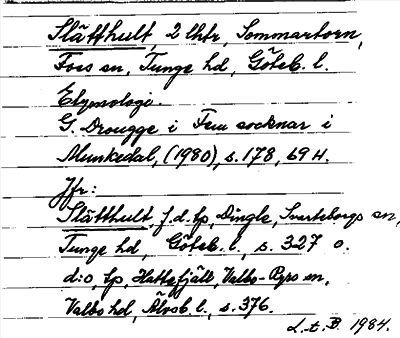 Slätthult, 2 lhtr, Sommartorn,
Foss sn, Tunge hd, Göteb. l.
Etymologi.
G. Drougge i Fem socknar i
Munkedal, (1980), s. 178, 69 H.
Jfr:
Slätthult, f.d. tp, Dingle, Svarteborgs sn,
Tunge hd, Göteb. l., s. 327 o.
d:o, tp, Hattefjäll, Valbo-Ryrs sn,
Valbo hd, Älvsb. l., s. 376.
1984.